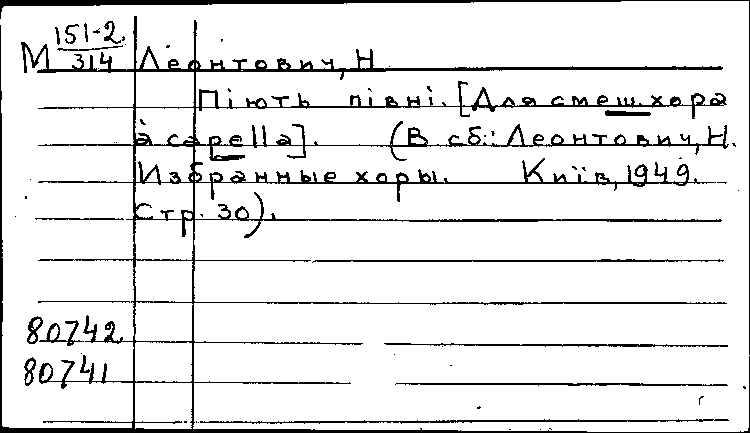 М 151-2/314 Леонтович, Н
Піють півні. [Для смеш. хора
à capella]. (В сб.: Леонтович, Н.
Избранные хоры. Київ, 1949.
Стр. 30).
80742
80741